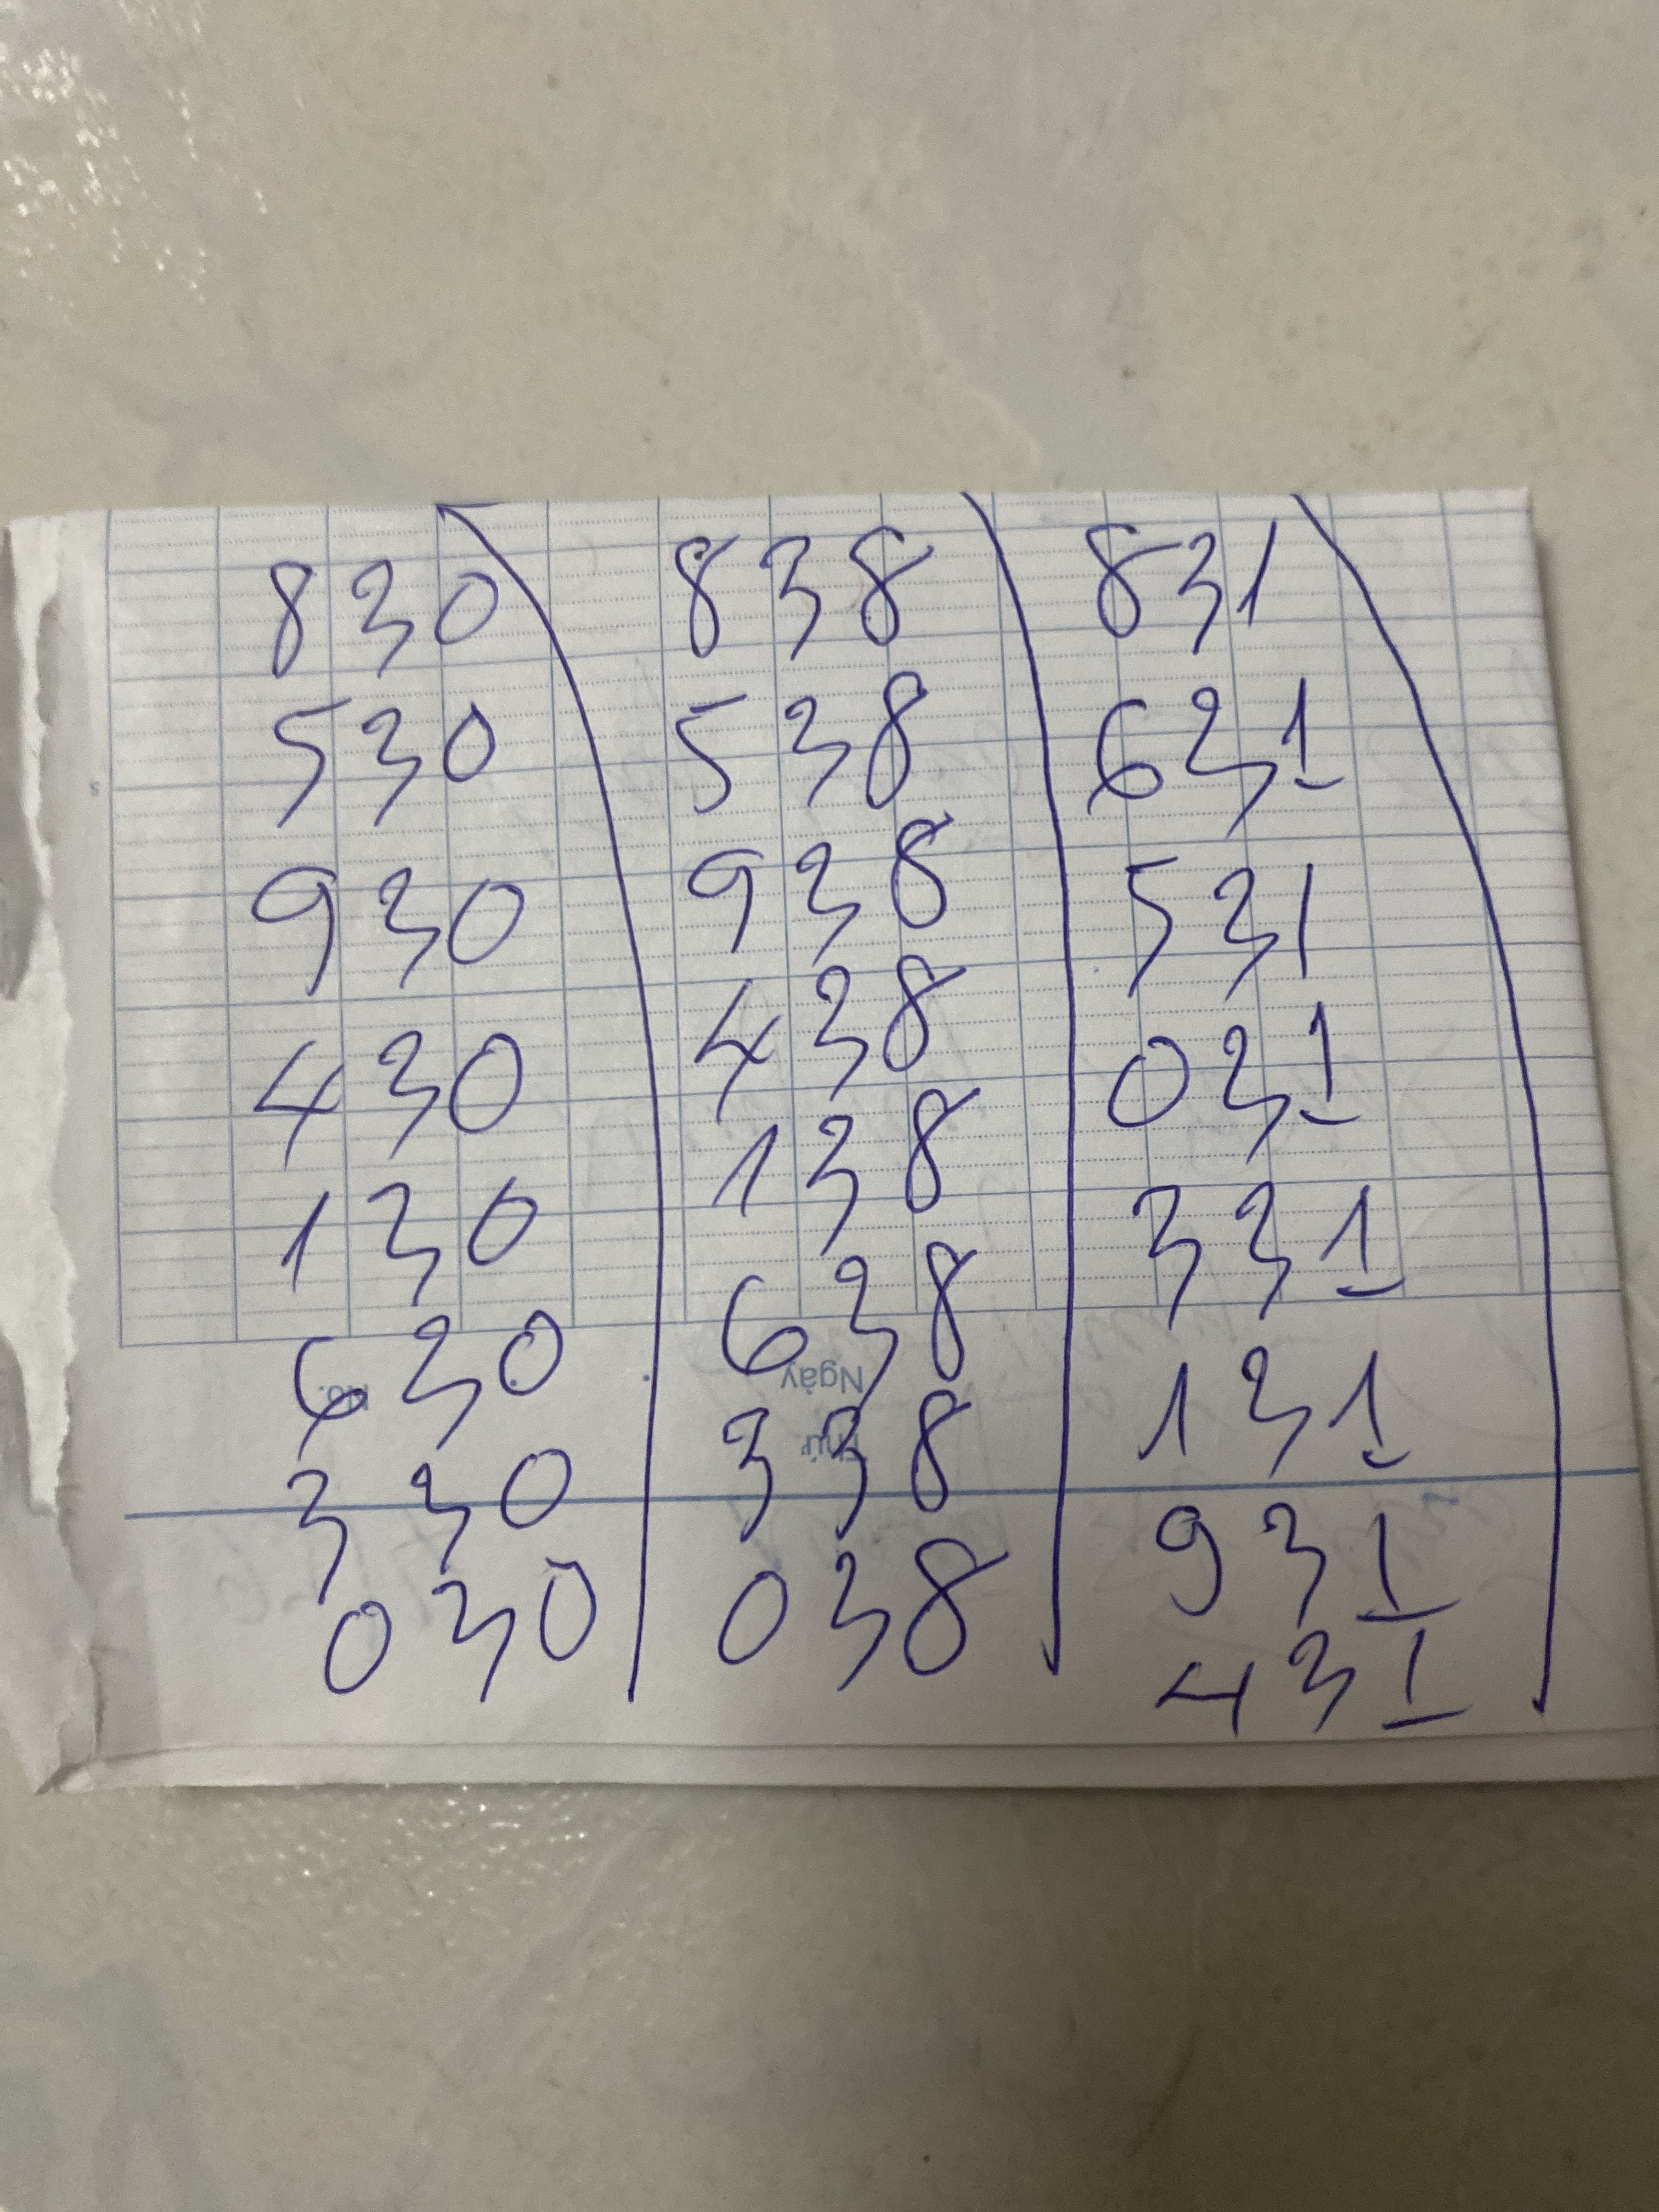 830 838 831
530 538 631
930 938 531
430 438 031
130 138 331
630 638 131
330 338 931
030 038 431
No.
Ngày
Thứ